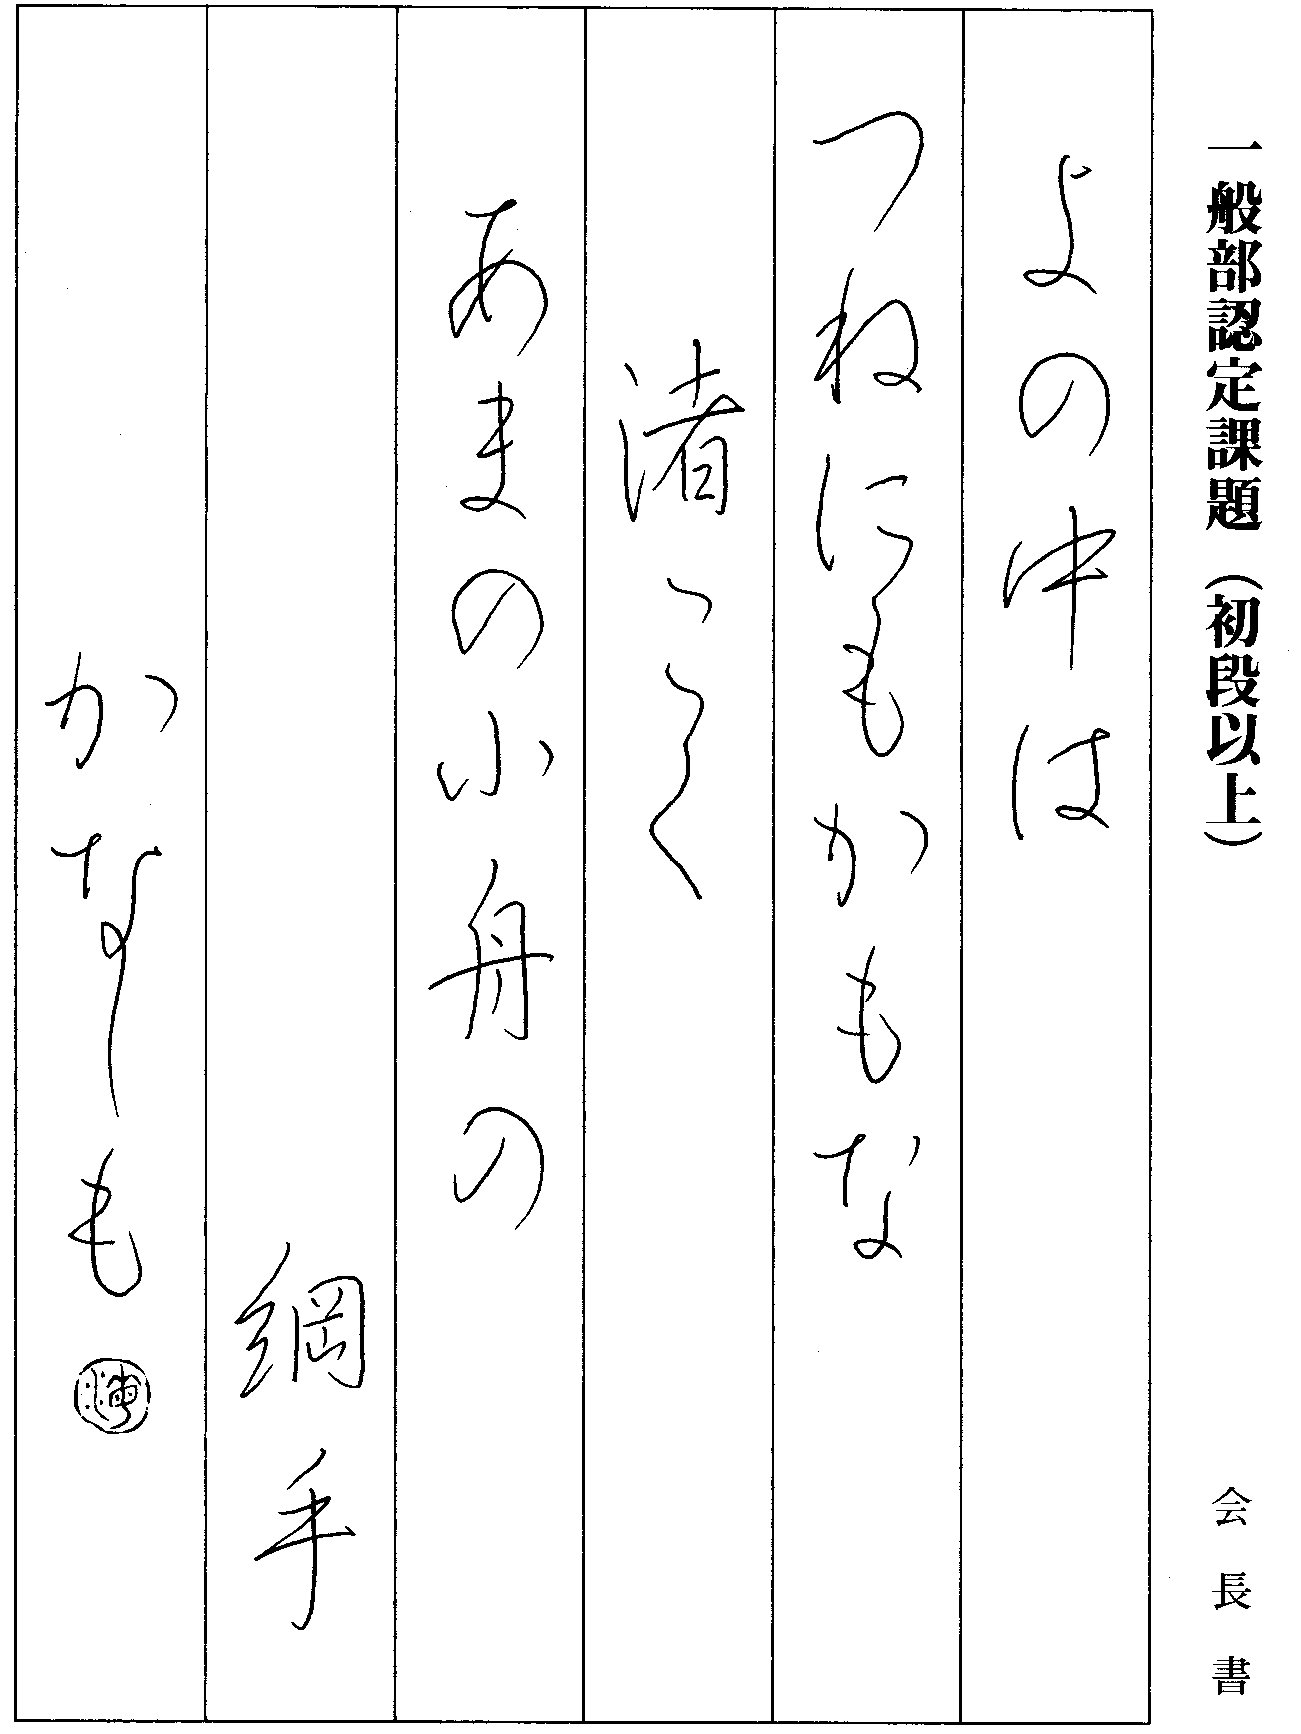 一般部認定課題(初段以上)
会長書
よの中は
つねにもかもな
渚こく
あまの小舟の
綱手
かなしも